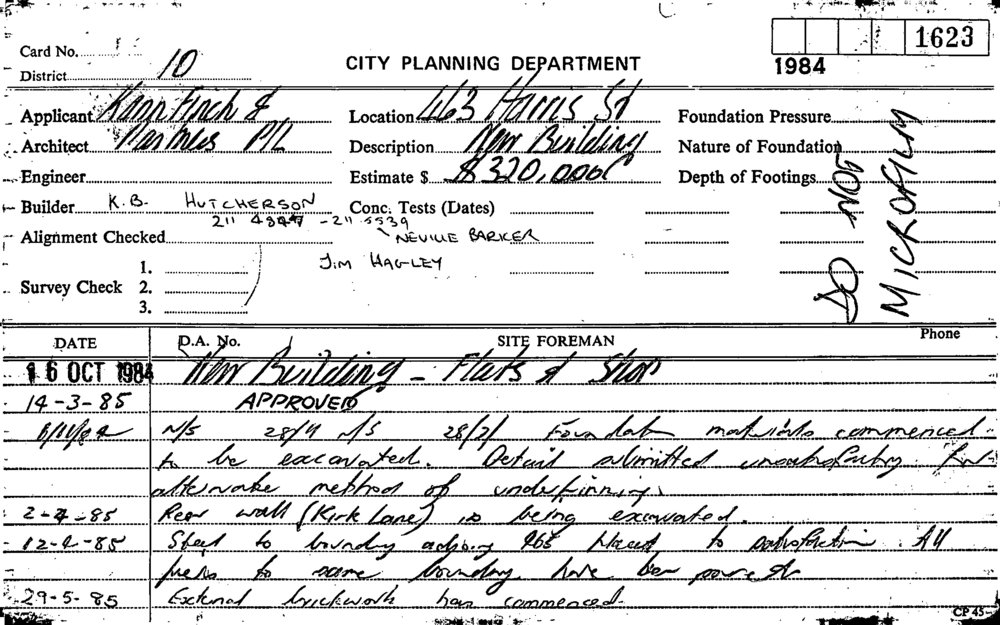 1623
Card No.
1984
District 10
CITY PLANNING DEPARTMENT
Applicant Kann Finch &
Location 463 Harris St
Foundation Pressure
Architect Partners P/L
Description New Building
Nature of Foundation
Engineer
Estimate $ $320,000
Depth of Footings
DO NOT
MICROFILM
Builder K.B. HUTCHERSON
Conc. Tests (Dates)
211 4847 - 211 5539
Alignment Checked
NEVILLE BARKER
JIM HAGLEY
1.
Survey Check 2.
3.
DATE D.A. No. SITE FOREMAN Phone
16 OCT 1984 New Building - Flats & Shop
14-3-85 APPROVED
N/S 28/11 N/S 28/2/ Foundation materials commenced
to be excavated. Detail submitted for
alternate method of underpinning.
2-4-85 Rear wall (Kirk Lane) is being excavated.
12-4-85 Steel to boundary adjoing 465 to satisfaction All
piers to same boundary have been poured
29-5-85 External brickwork has commenced.
CP 45